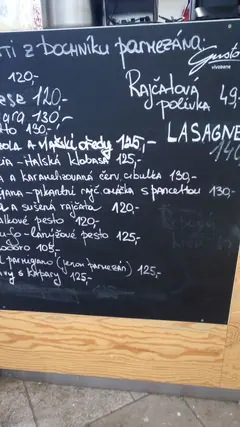 TI z bochníku parmezánu:
120,-
ese 120,-
ara 130,-
to 130,-
ola a vlašské ořechy 125,-
ia - italská klobasa 125,-
a a karamelizovaná červ. cibulka 130,-
iana - pikantní rajč. omáčka s pancettou 130,-
a sušená rajčata 120,-
alkové pesto 120,-
ufo - lanýžové pesto 125,-
odoro 105,-
l parmigiano (jenom parmezán) 125,-
y s kapary 125,-
Gusto
vivobene
Rajčatová
polívka 49,-
LASAGNE
140